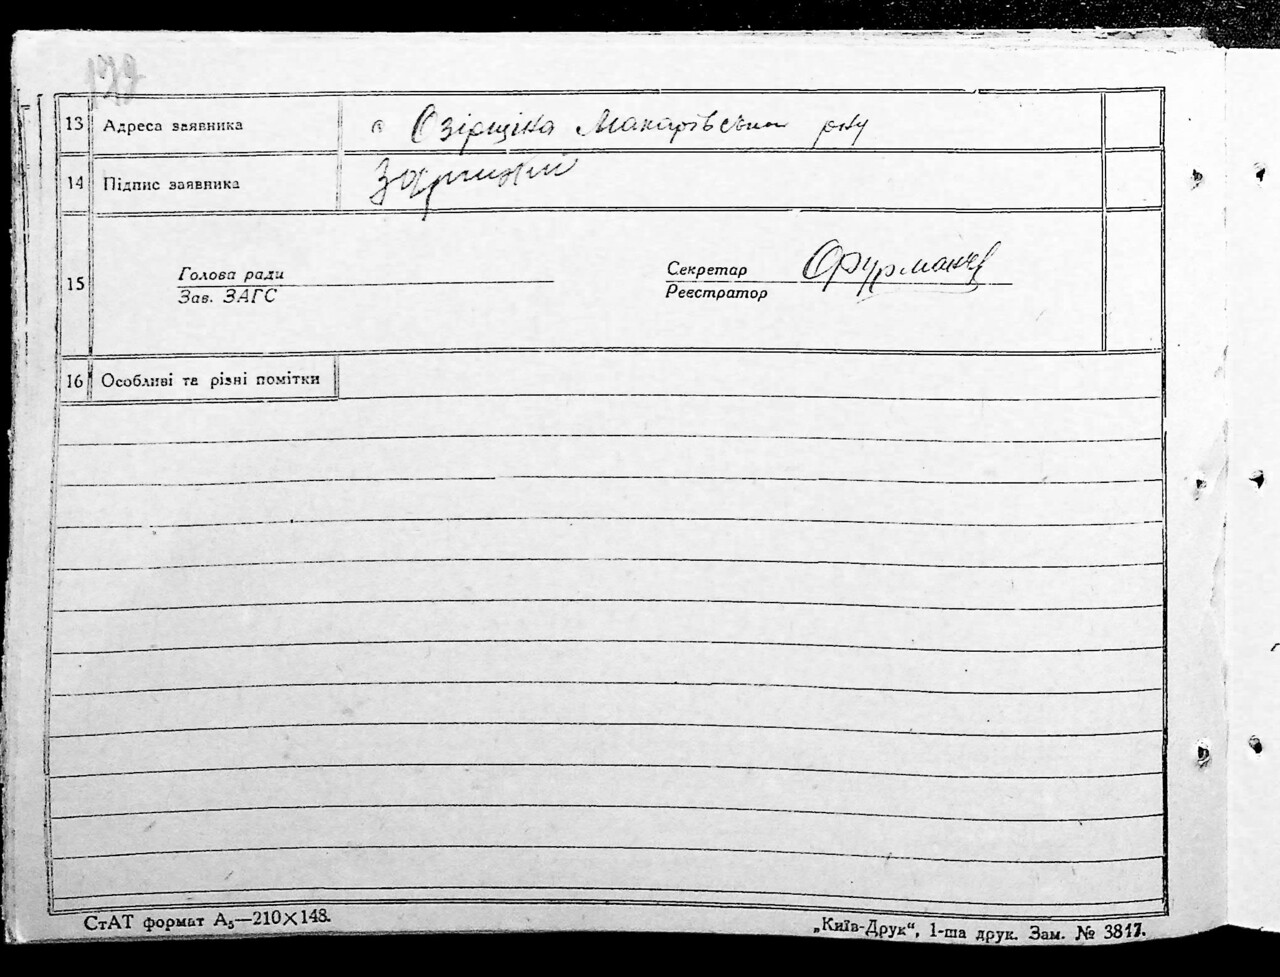 13 Адреса заявника с Озірщіка Макарівського р-ну
14 Підпис заявника
15 Голова ради Секретар Фурман
Зав. ЗАГС Реєстратор
16 Особливі та різні помітки
СтАТ формат А₅—210×148. „Київ-Друк“, 1-ша друк. Зам. № 3817.